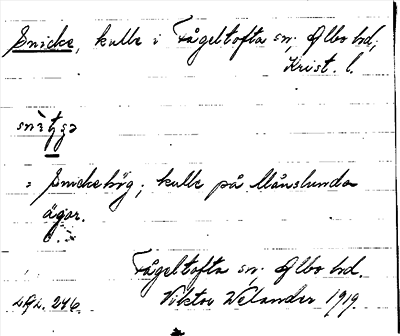 Snicke, kulle i Fågeltofta sn; Albo hd;
Krist. l.
= Snickehög; kulle på Månslunda
ägor.
Fågeltofta sn. Albo hd.
Viktor Welander 1919.
LAL. 246.